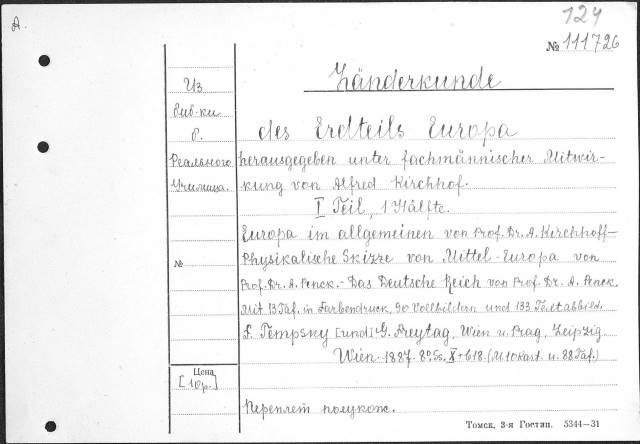 A.
124
№ 111726
Länderkunde
Из
биб-ки
б.
Реального
Училища.
des Erdteils Europa
herausgegeben unter fachmännischer Mitwir-
kung von Alfred Kirchhof.
I Teil, 1 Hälfte.
Europa im allgemeinen von Prof. Dr. A. Kirchhoff-
Physikalische Skizze von Mittel-Europa von
№
Prof. Dr. A. Penck.- Das Deutsche Reich von Prof. Dr. A. Penck.
Mit 13 Taf. in Farbendruck, 90 Vollbildern und 133 Textabbild.
F. Tempsky [und] G. Freytag, Wien u. Prag, Leipzig
Wien. 1887. 8°. Ss. X+618. (M. 10 Kart. u. 88 Taf.)
Цена
[10р.]
Переплет полукож.
Томск, 3-я Гостип. 5344—31